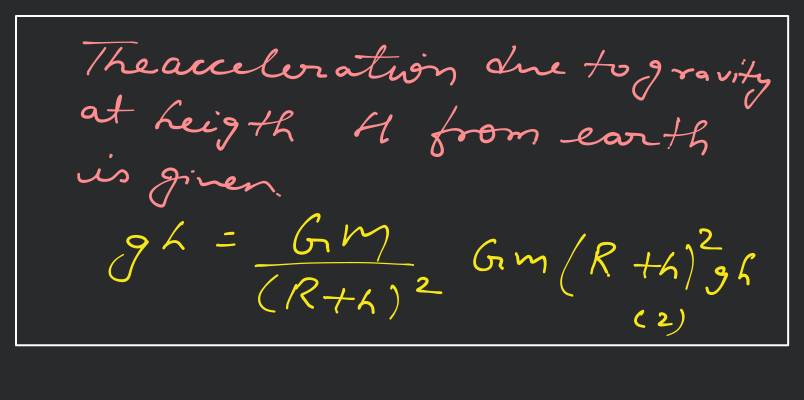 The acceleration due to gravity
at heigth H from earth
is given.
gh = GM/(R+h)² Gm(R+h)²gh
(2)